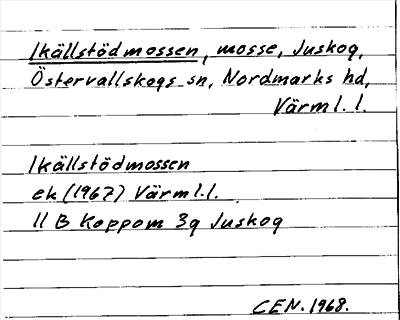 Ikällstödmossen, mosse, Juskog,
Östervallskogs sn, Nordmarks hd,
Värml. l.
Ikällstödmossen
ek (1967) Värml.l.
11 B Koppom 3g Juskog
CEN. 1968.